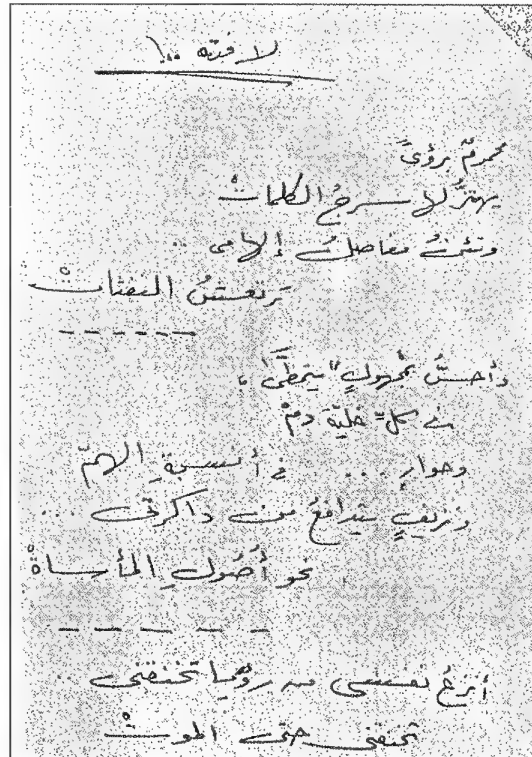 لافتة ..١
محمومٌ برؤىً
يهتزُّ لها سرجُ الكلماتْ
وتئنُّ مفاصلُ إلهامي ..
ترتعشُ النفثاتْ
------
وأحسُّ بمجهولٍ "يتمطَّى"،
في كلِّ خليّة دمْ
وحوارٍ ... في أنسجةِ الهمّ
ونزيفٍ يتدافعُ من ذاكرتي ...
نحو أصُولِ المأساةْ
-----
أنزعُ نفسي من رؤيا تخنقني ..
تخنقني حتى الموتْ